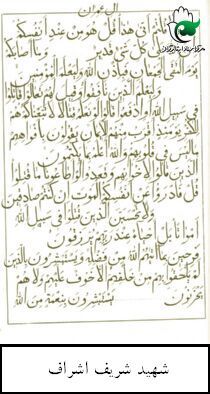 آل عمران
قلتم انى هذا قل هو من عند انفسكم
كل شئ قدير وما اصابكم
يوم التقى الجمعان فباذن الله وليعلم المؤمنين
وليعلم الذين نافقوا وقيل لهم تعالوا قاتلوا
فى سبيل الله او ادفعوا قالوا لو نعلم قتالا لاتبعناكم هم
للكفر يومئذ اقرب منهم للايمان يقولون بافواههم
ما ليس فى قلوبهم والله اعلم بما يكتمون
الذين قالوا لاخوانهم وقعدوا لو اطاعونا ما قتلوا
قل فادرؤا عن انفسكم الموت ان كنتم صادقين
ولا تحسبن الذين قتلوا فى سبيل الله
امواتا بل احياء عند ربهم يرزقون
فرحين بما آتاهم الله من فضله ويستبشرون بالذين
لم يلحقوا بهم من خلفهم الا خوف عليهم ولا هم
يحزنون يستبشرون بنعمة من الله
شهید شریف اشراف